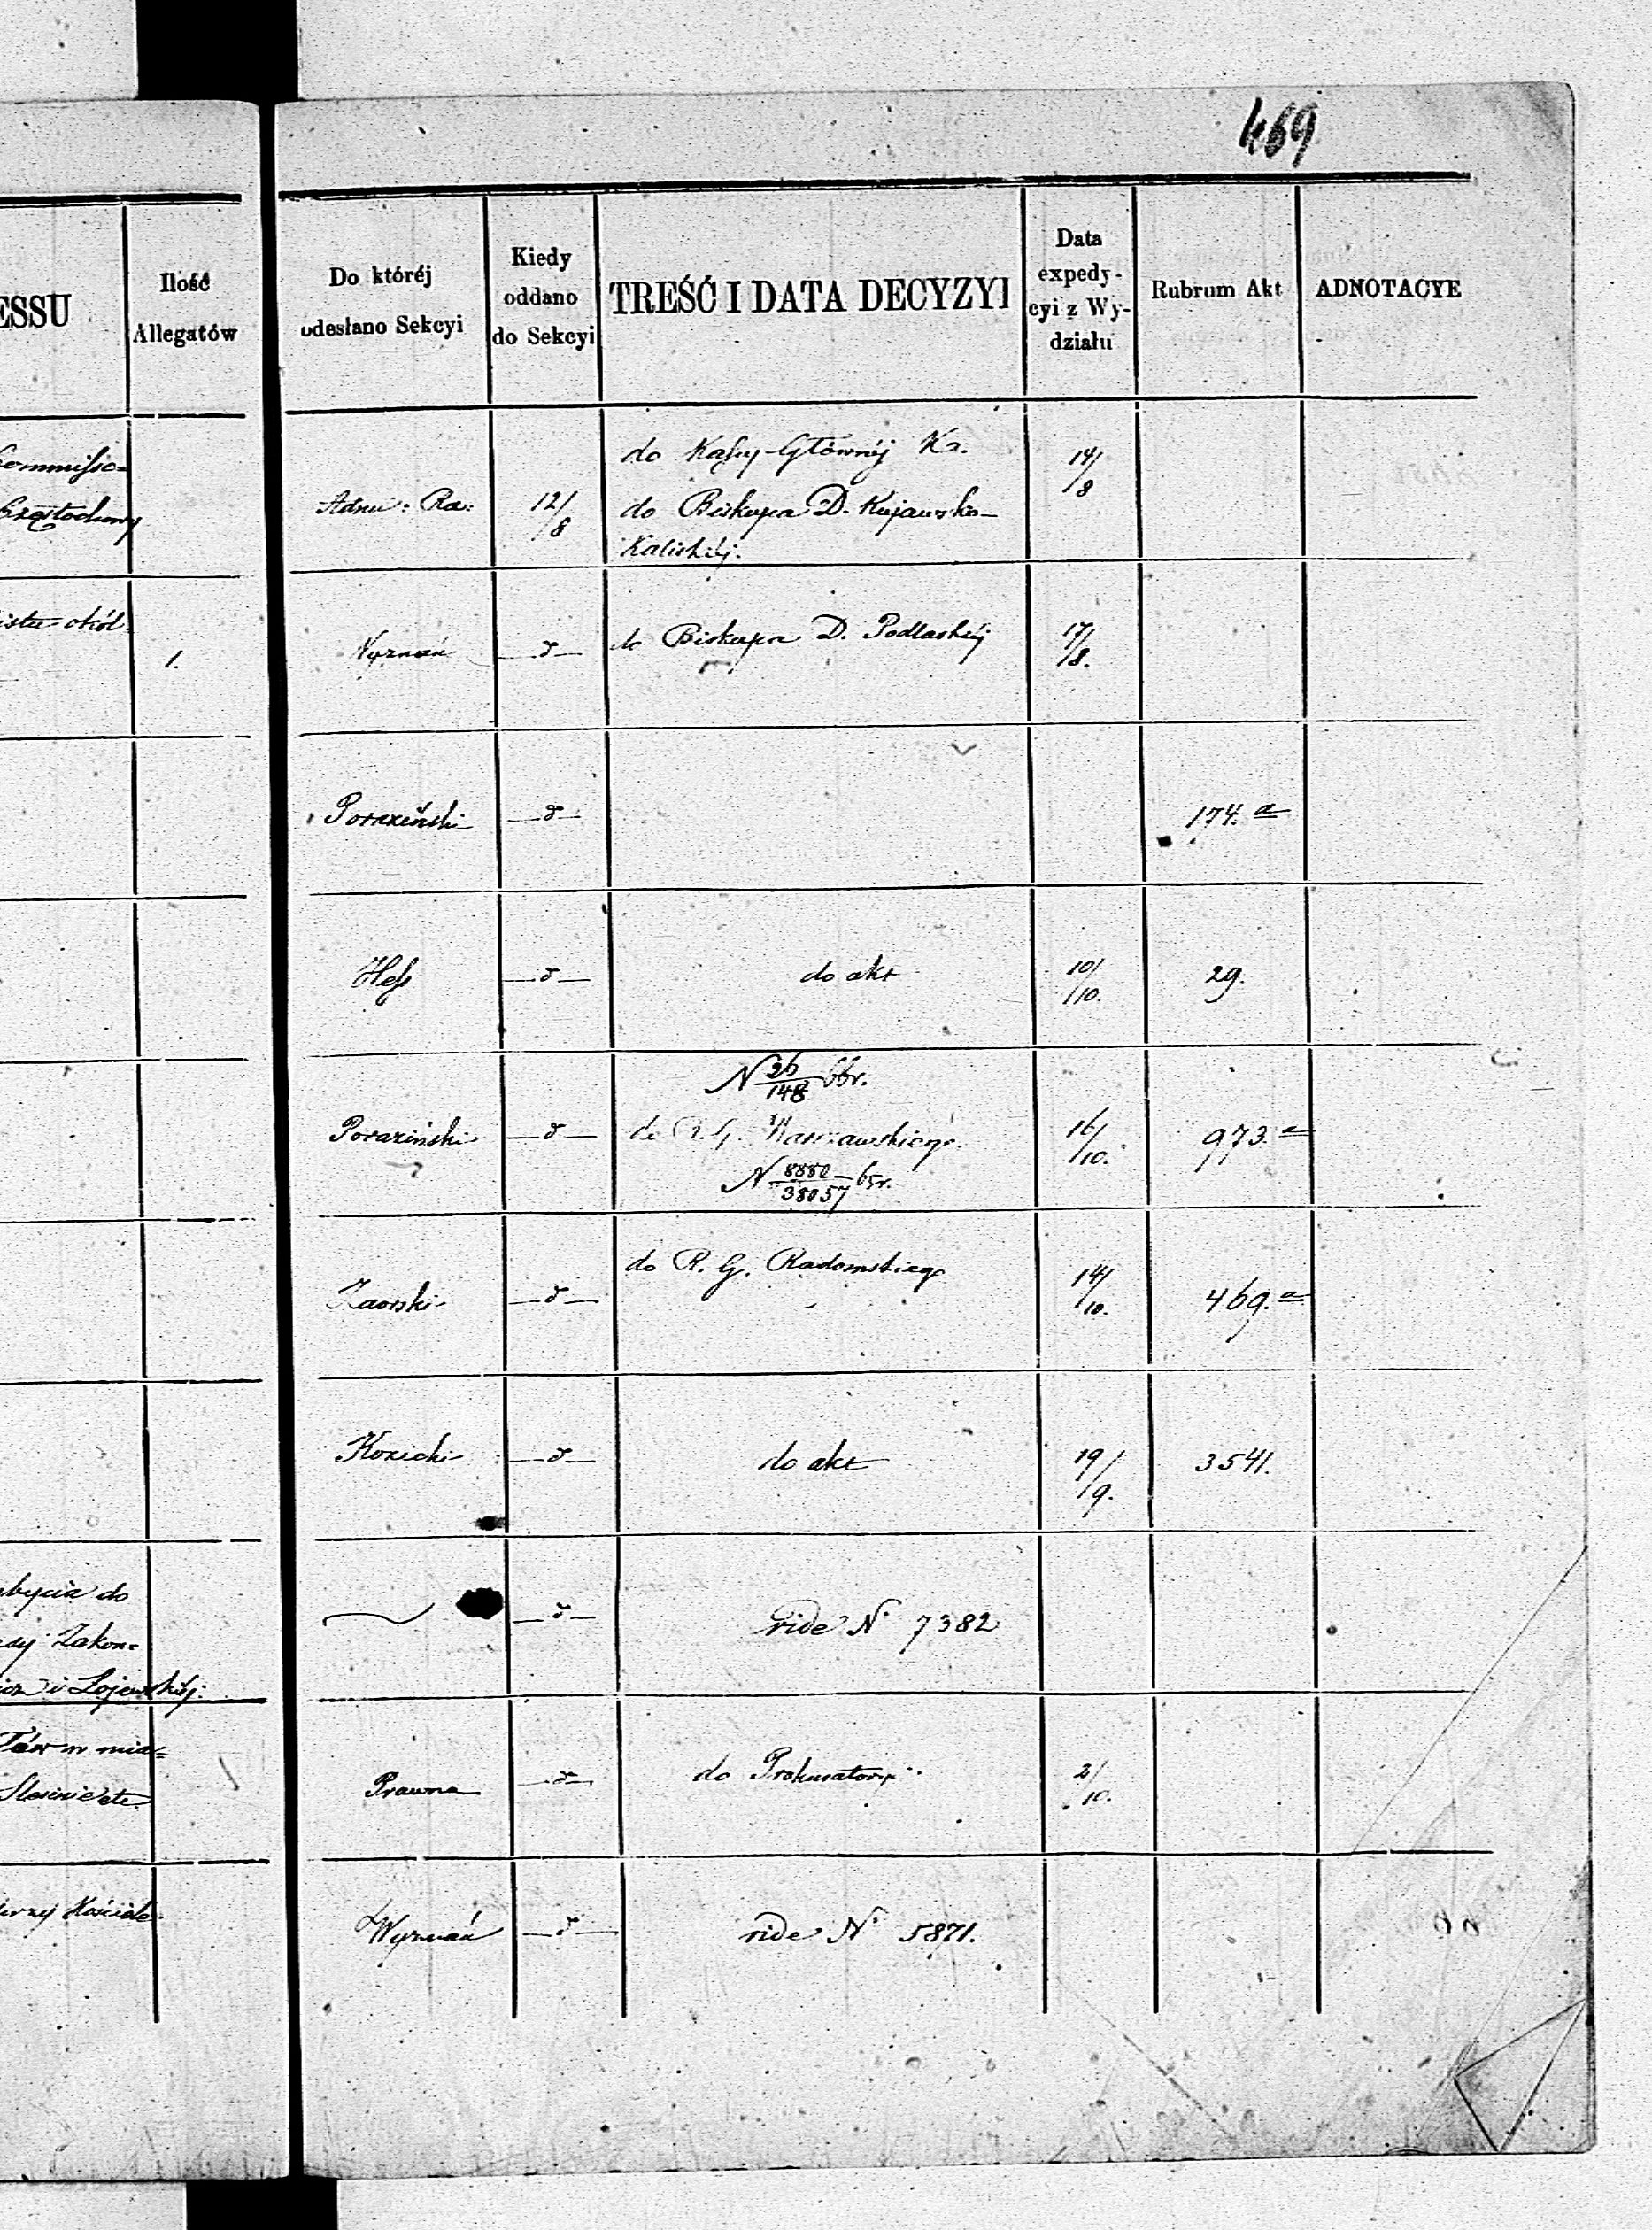 469
ESSU
Ilość
Allegatów
Do któréj
odesłano Sekcyi
Kiedy
oddano
do Sekcyi
TREŚĆ I DATA DECYZYI
Data
expedy-
cyi z Wy-
działu
Rubrum Akt
ADNOTACYE
Commisso=
Częstochowy
Adm: Ra:
12/8
do Kassy Głównéj Kr.
do Biskupa D. Kujawsko-
Kaliskiéj.
14/8
okól
1.
Wyznań
d
do Biskupa D. Podlaskiéj
17/8.
Poraziński
d
174. a
Hess
d
do akt
10/10.
29.
Poraziński
d
N 26/148 66r.
do R. G. Warszawskiego.
N. 8880/38057 65r.
16/10.
973. a
Zaorski
d
do R. G. Radomskiego
14/10.
469. a
Kozicki
d
do akt
19/9.
3541.
bycia do
Zakon=
i Łojewskiéj:
d
vide N. 7382
w mia=
etc.
Prawna
d
do Prokuratoryi
2/10.
Wyznań
d
vide N. 5871.